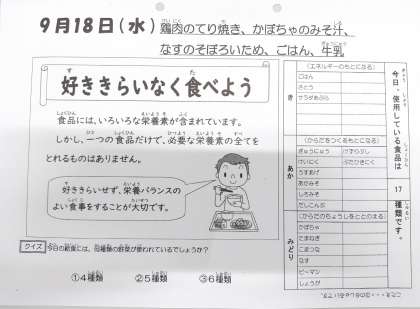 9月18日（水）鶏肉のてり焼き、かぼちゃのみそ汁、
なすのそぼろいため、ごはん、牛乳
好ききらいなく食べよう
食品には、いろいろな栄養素が含まれています。
しかし、一つの食品だけで、必要な栄養素の全てを
とれるものはありません。
好ききらいせず、栄養バランスの
よい食事をすることが大切です。
クイズ 今日の給食には、何種類の野菜が使われているでしょうか？
①4種類 ②5種類 ③6種類
今日、使用している食品は
17
種類です。
き
（エネルギーのもとになる）
ごはん
さとう
サラダあぶら
あか
（からだをつくるもとになる）
ぎゅうにゅう けずりぶし
けいにく ぶたひきにく
うすあげ
あかみそ
しろみそ
だしこんぶ
みどり
（からだのちょうしをととのえる）
かぼちゃ
たまねぎ
こまつな
なす
ピーマン
しょうが